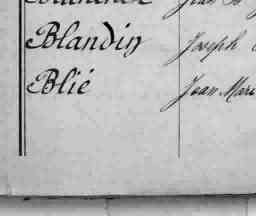 Blandin Joseph
Blié Jean Mari